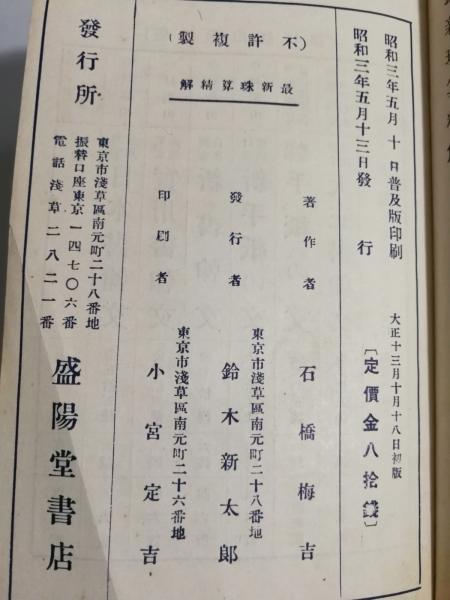 昭和三年五月十日普及版印刷
昭和三年五月十三日發行
大正十三月十月十八日初版
〔定價金八拾錢〕
(不許複製)
最新珠算精解
著作者 石橋梅吉
東京市淺草區南元町二十八番地
發行者 鈴木新太郎
東京市淺草區南元町二十六番地
印刷者 小宮定吉
發行所
東京市淺草區南元町二十八番地
振替口座東京一四七〇六番
電話淺草二八二一番
盛陽堂書店